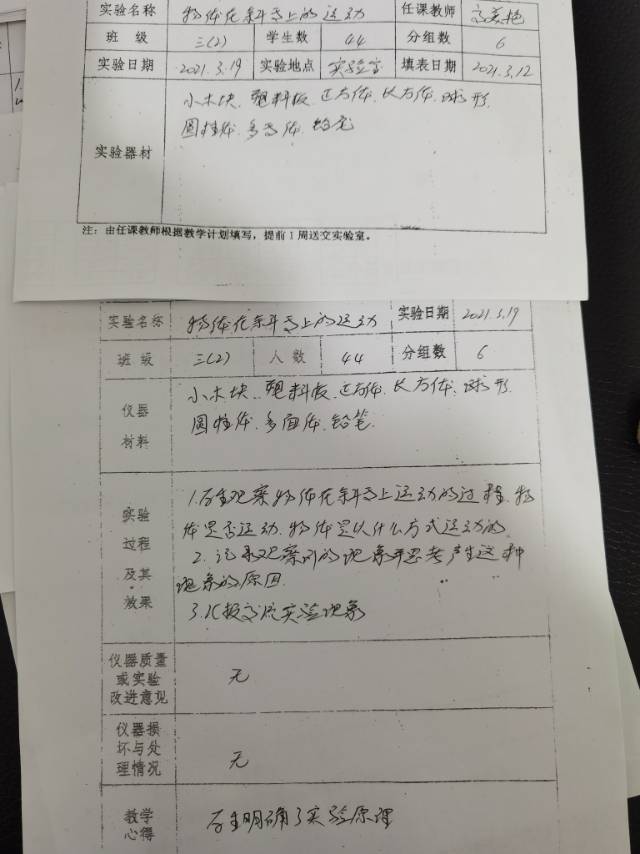 实验名称 物体在斜面上的运动 任课教师
班 级 三(2) 学生数 44 分组数 6
实验日期 2021.3.19 实验地点 实验室 填表日期 2021.3.12
实验器材
小木块、塑料板、正方体、长方体、球形、
圆柱体、多面体、铅笔
注：由任课教师根据教学计划填写，提前1周送交实验室。
实验名称 物体在斜面上的运动 实验日期 2021.3.19
班 级 三(2) 人 数 44 分组数 6
仪器
材料
小木块、塑料板、正方体、长方体、球形、
圆柱体、多面体、铅笔.
实验
过程
及其
效果
1.学生观察物体在斜面上运动的过程,物
体是否运动.物体是以什么方式运动的
2.记录观察到的现象并思考产生这种
现象的原因.
3.汇报交流实验现象
仪器质量
或实验
改进意见
无
仪器损
坏与处
理情况
无
教学
心得
学生明确了实验原理